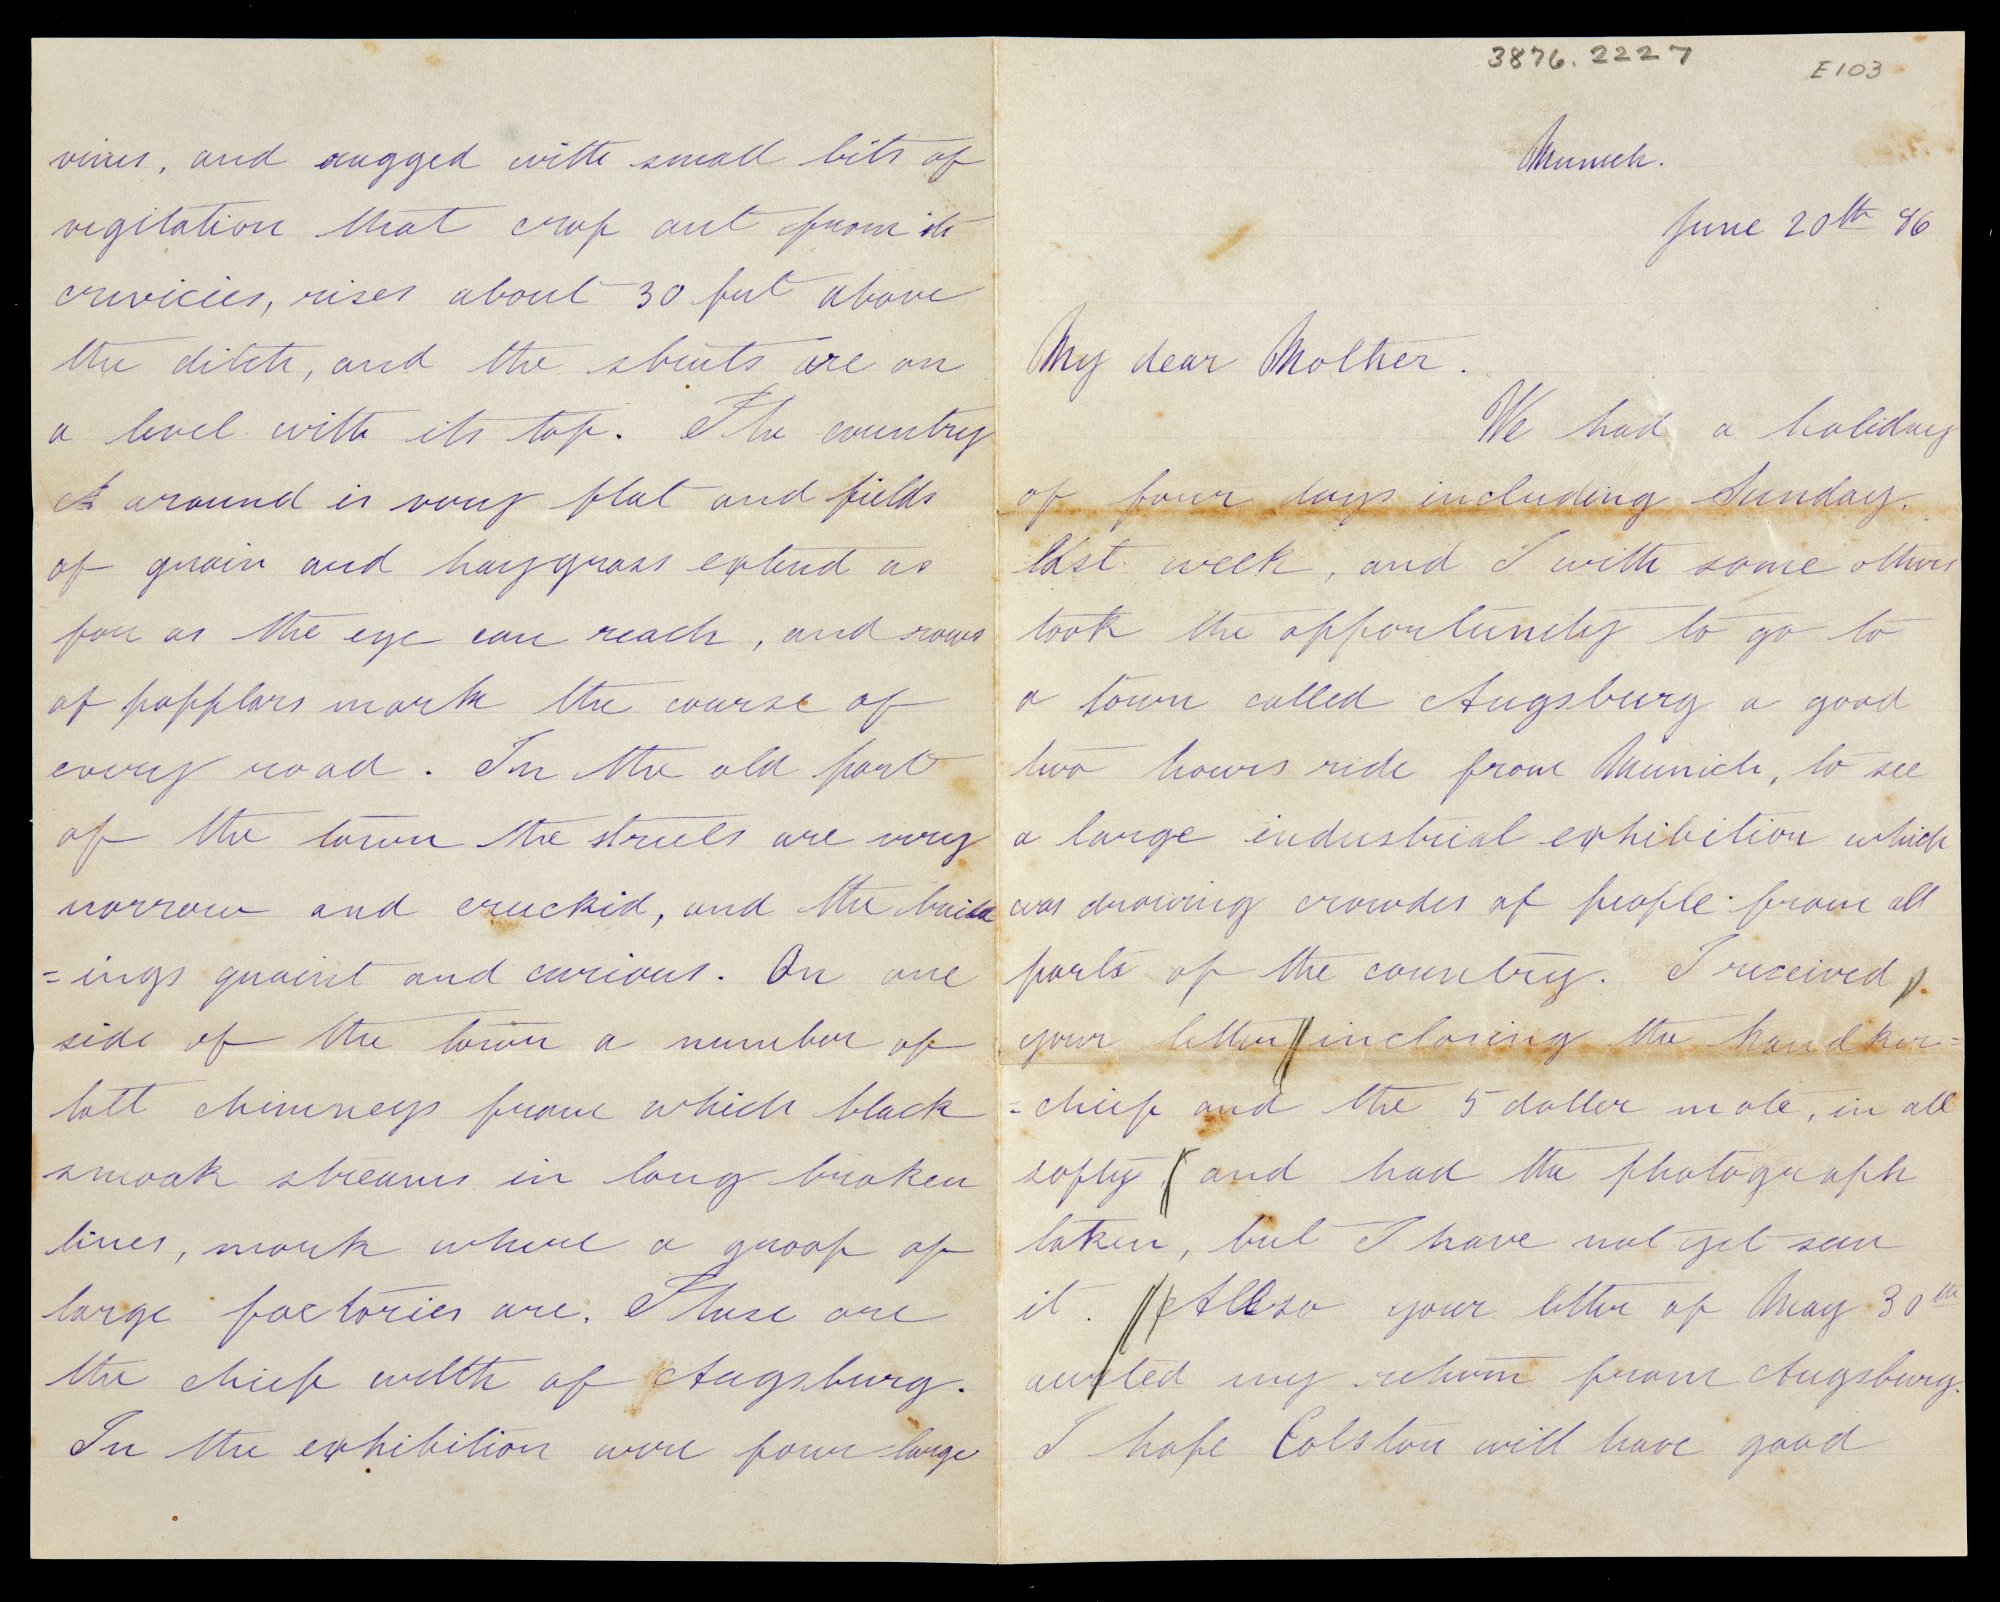 3876.2227
E103
Munich.
June 20th 86
My dear Mother.
We had a holiday
of four days including Sunday,
last week, and I with some others
took the opportunity to go to
a town called Augsburg a good
two hours ride from Munich, to see
a large industrial exhibition which
was drawing crowdes of people from all
parts of the country. I received
your letter inclosing the handker=
=chief and the 5 doller note, in all
safty, and had the photograph
taken, but I have not yet seen
it. Allso your letter of May 30th
awated my return from Augsburg.
I hope Colston will have good
vines, and rugged with small bits of
vegitation that crop out from its
crevicies, rises about 30 feet above
the ditch, and the streets are on
a level with its top. The country
around is very flat and fields
of grain and haygrass extend as
far as the eye can reach, and rows
of popplars mark the course of
every road. In the old part
of the town the streets are very
narrow and cruckid, and the build
=ings quaint and curious. On one
side of the town a number of
tall chimneys from which black
smoak streams in long broken
lines, mark where a groop of
large factories are. These are
the chief welth of Augsburg.
In the exhibition were four large